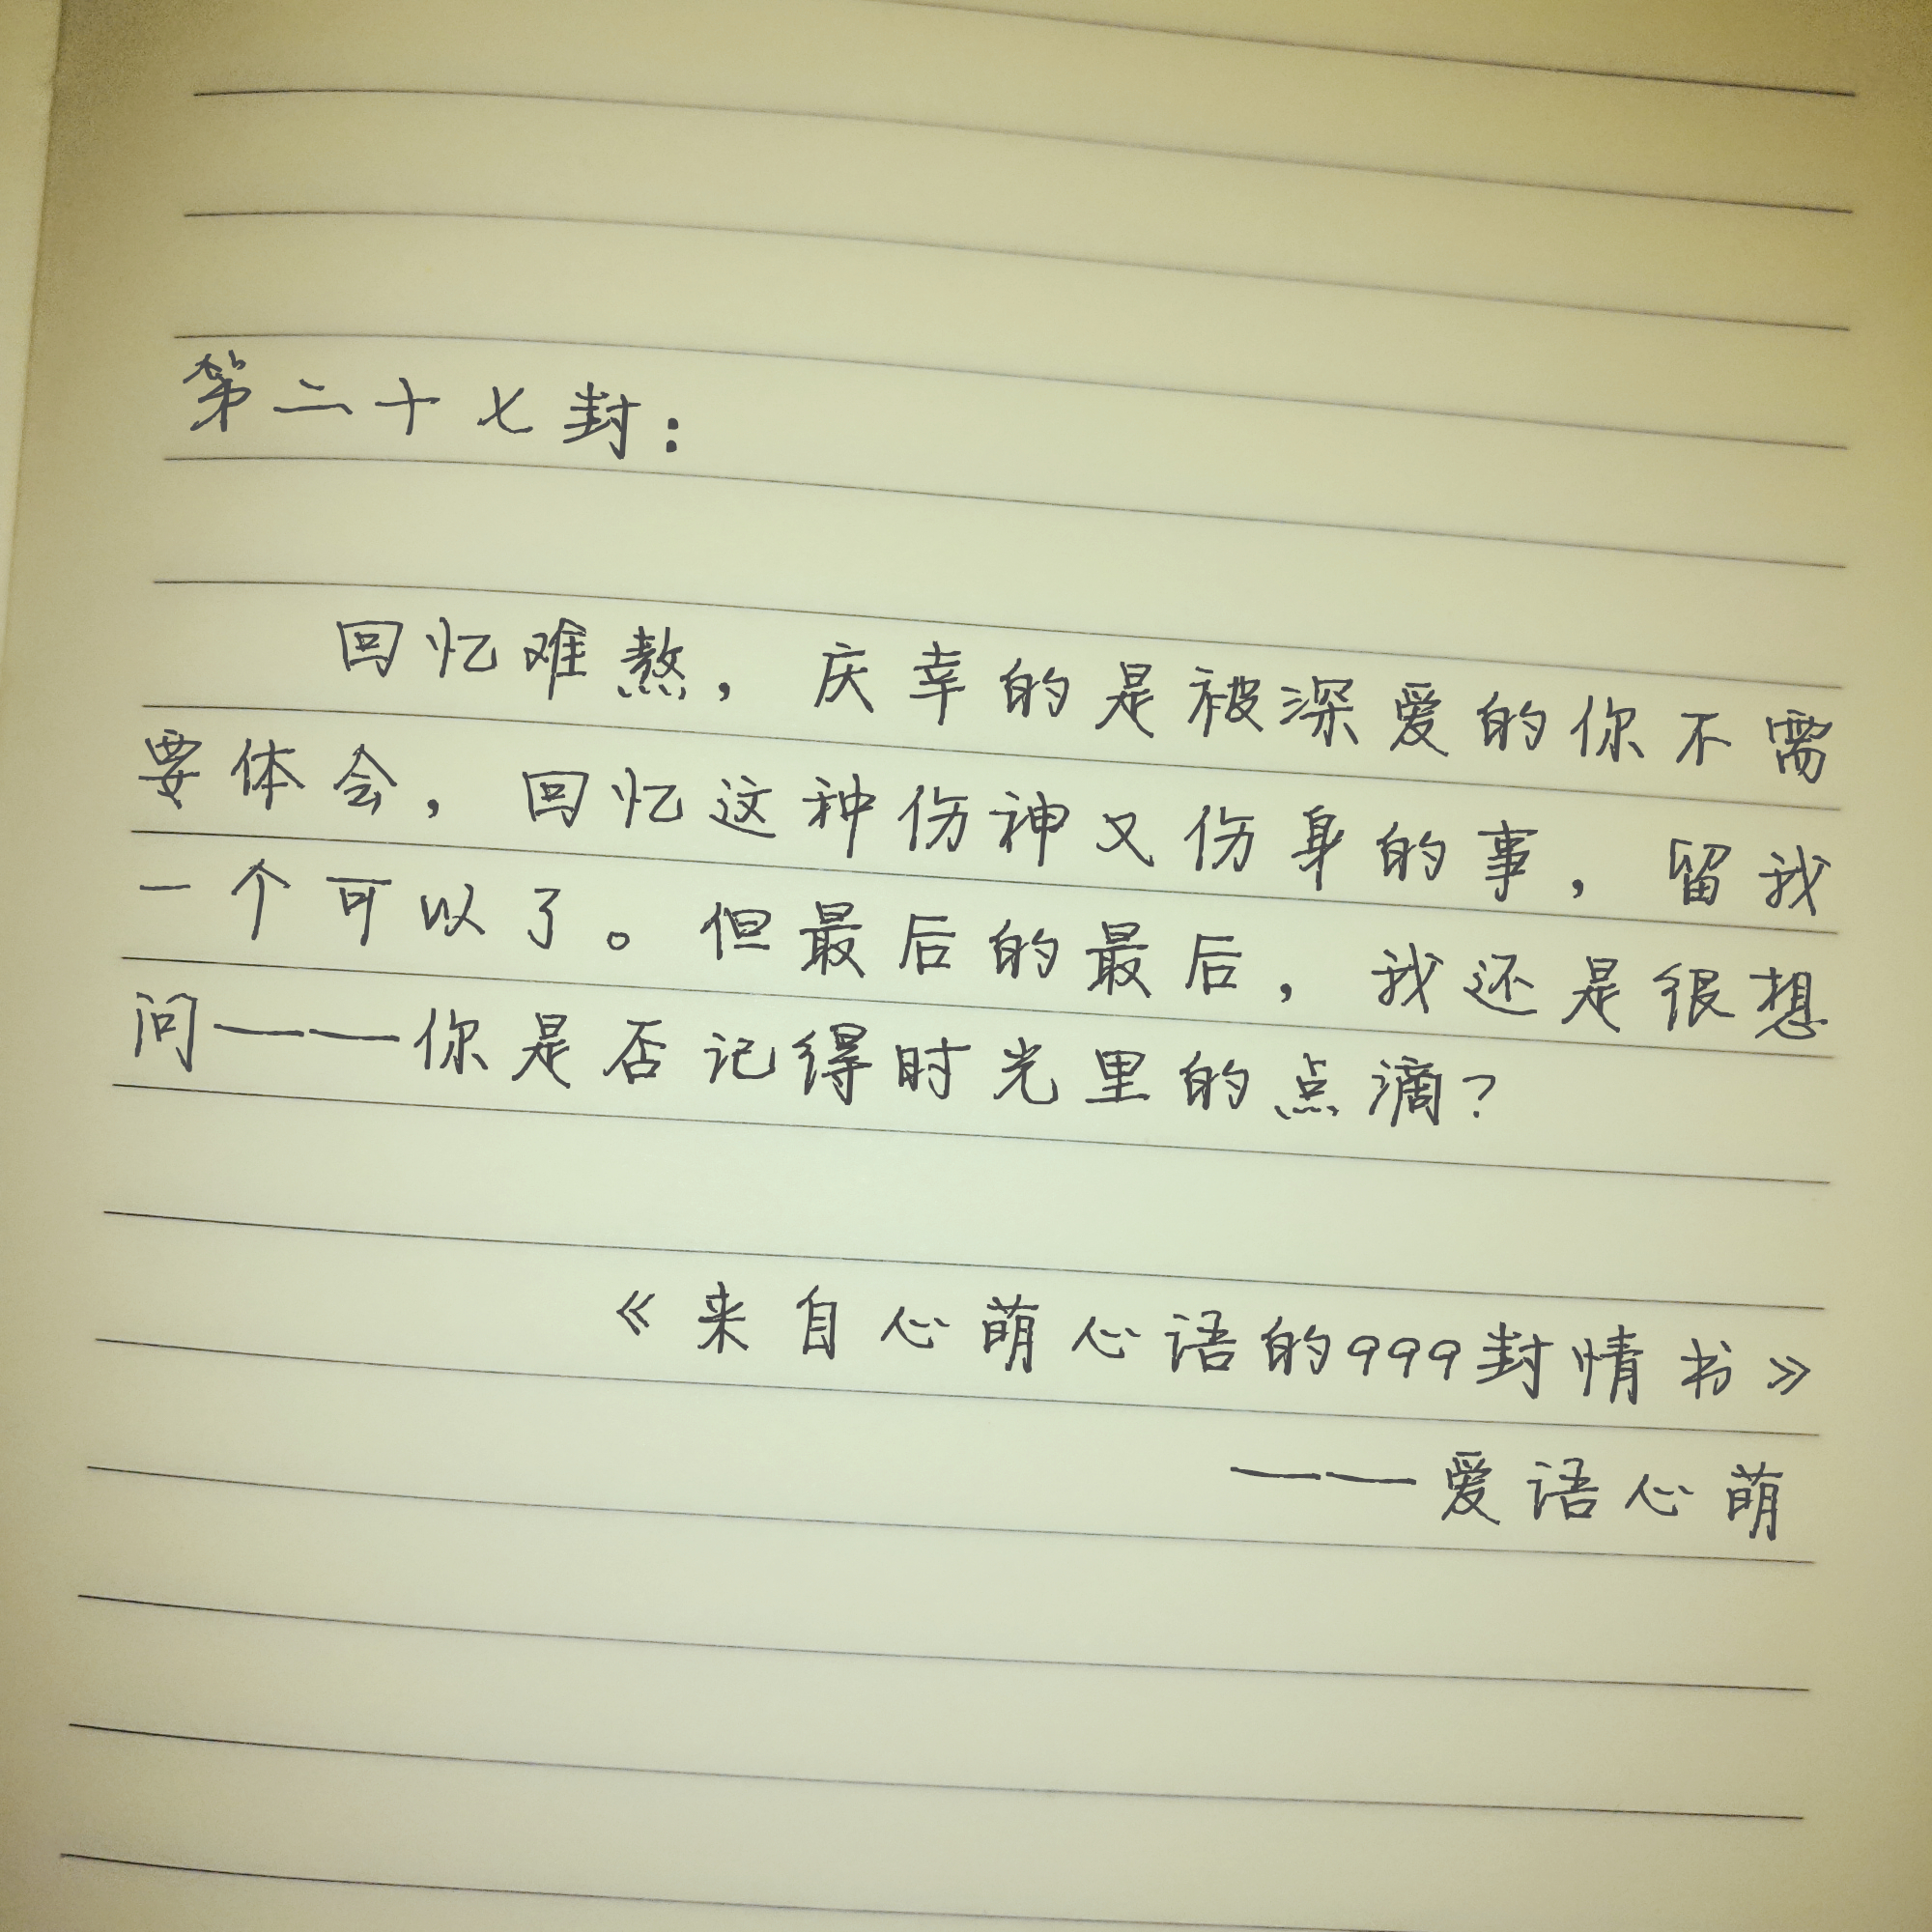 第二十七封：
回忆难熬，庆幸的是被深爱的你不需
要体会，回忆这种伤神又伤身的事，留我
一个可以了。但最后的最后，我还是很想
问——你是否记得时光里的点滴？
《来自心萌心语的999封情书》
——爱语心萌